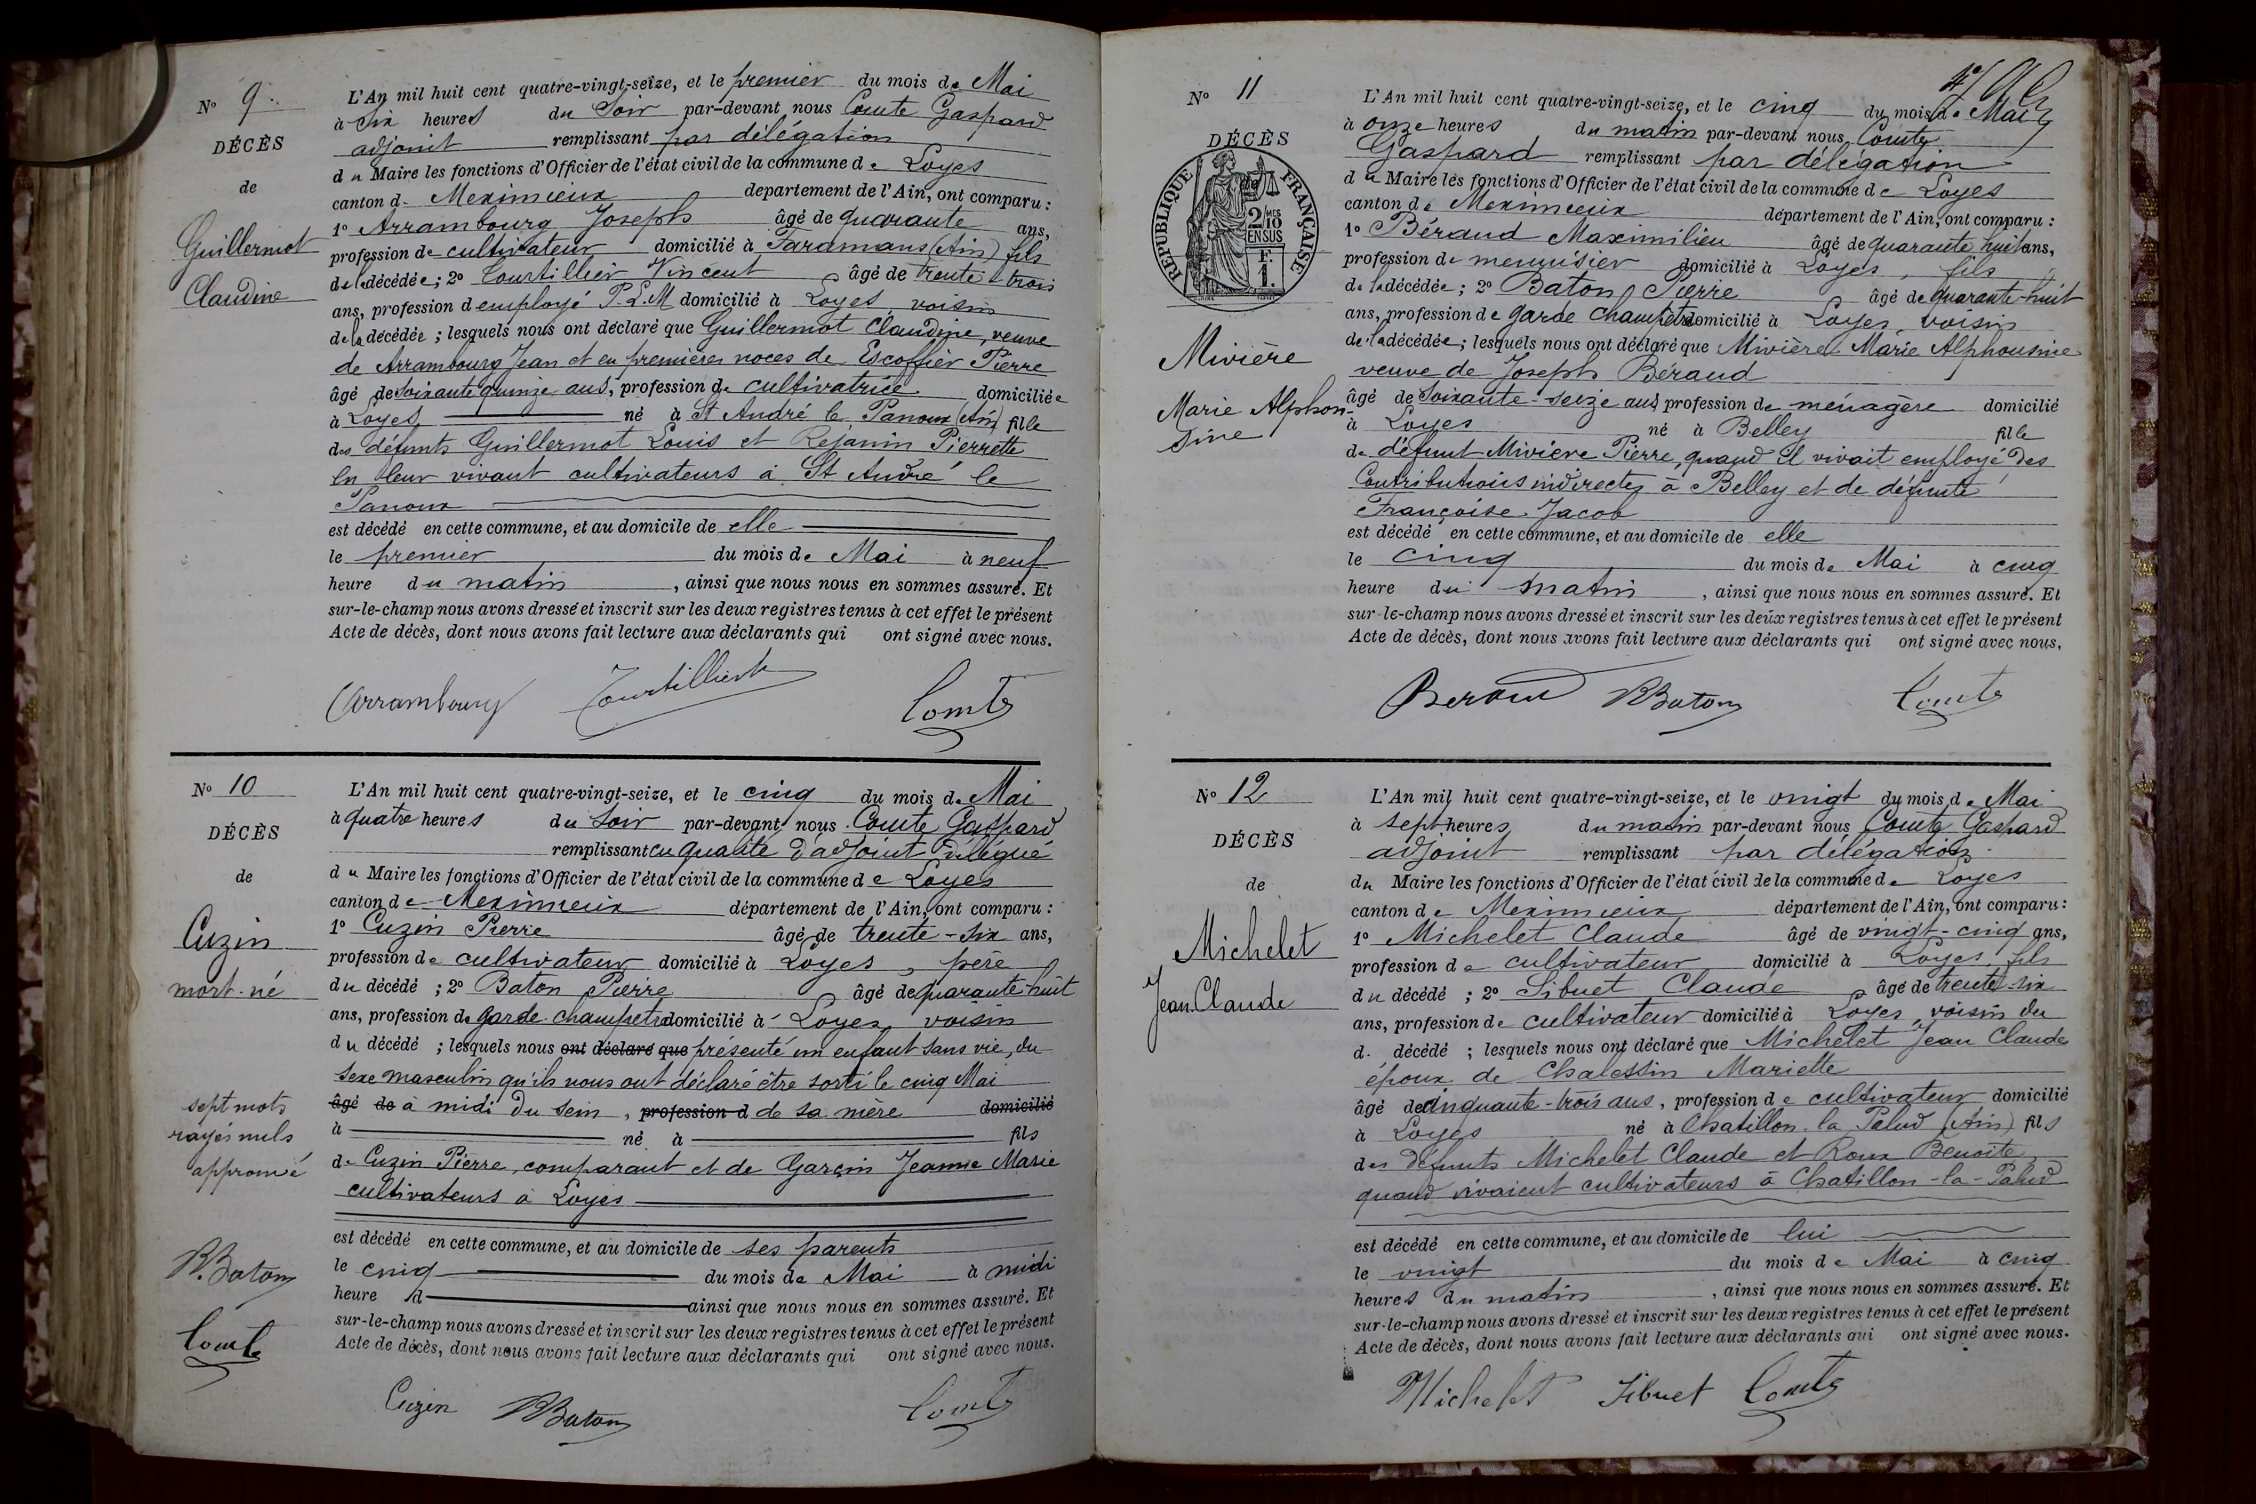 N° 9
DÉCÈS
de
Guillermot
Claudine
L'An mil huit cent quatre-vingt-seize, et le premier du mois de Mai
à six heures du Soir par-devant nous Comte Gaspard
adjoint remplissant par délégation
du Maire les fonctions d'Officier de l'état civil de la commune de Loyes
canton de Meximieux département de l'Ain, ont comparu :
1° Arrambourg Joseph âgé de quarante ans,
profession de cultivateur domicilié à Faramans (Ain) fils
de la décédée ; 2° Tourtillier Vincent âgé de trente trois
ans, profession d employé P.L.M domicilié à Loyes, voisin
de la décédée ; lesquels nous ont déclaré que Guillermot Claudine, veuve
de Arrambourg Jean et en premières noces de Escoffier Pierre
âgé de soixante quinze ans, profession de cultivatrice domiciliée
à Loyes né à St André le Panoux (Ain) fille
des défunts Guillermot Louis et Rejanin Pierrette
en leur vivant cultivateurs à St André le
Panoux
est décédé en cette commune, et au domicile de elle
le premier du mois de Mai à neuf
heure du matin, ainsi que nous nous en sommes assuré. Et
sur-le-champ nous avons dressé et inscrit sur les deux registres tenus à cet effet le présent
Acte de décès, dont nous avons fait lecture aux déclarants qui ont signé avec nous.
Arrambourg Tourtillier Comte
N° 10
DÉCÈS
de
Cuzin
mort-né
sept mots
rayés nuls
approuvé
B.Baton
Comte
L'An mil huit cent quatre-vingt-seize, et le cinq du mois de Mai
à quatre heures du soir par-devant nous Comte Gaspard
remplissant en qualité d'adjoint délégué
du Maire les fonctions d'Officier de l'état civil de la commune de Loyes
canton de Meximieux département de l'Ain, ont comparu :
1° Cuzin Pierre âgé de trente-six ans,
profession de cultivateur domicilié à Loyes, père
du décédé ; 2° Baton Pierre âgé de quarante-huit
ans, profession de garde-champetre domicilié à Loyes, voisin
du décédé ; lesquels nous ont déclaré que présenté un enfant sans vie, du
sexe masculin qu'ils nous ont déclaré être sorti le cinq Mai
âgé de à midi du sein, profession d de sa mère domicilié
à né à fils
de Cuzin Pierre, comparant et de Garcin Jeanne Marie
cultivateurs à Loyes
est décédé en cette commune, et au domicile de ses parents
le cinq du mois de Mai à midi
heure d ainsi que nous nous en sommes assuré. Et
sur-le-champ nous avons dressé et inscrit sur les deux registres tenus à cet effet le présent
Acte de décès, dont nous avons fait lecture aux déclarants qui ont signé avec nous.
Cuzin BBaton Comte
N° 11
DÉCÈS
de
RÉPUBLIQUE FRANÇAISE
2/10 MES
EN SUS
F.
1.
Mivière
Marie Alphon-
sine
L'An mil huit cent quatre-vingt-seize, et le cinq du mois de Mai
à onze heures du matin par-devant nous Comte
Gaspard remplissant par délégation
du Maire les fonctions d'Officier de l'état civil de la commune de Loyes
canton de Meximieux département de l'Ain, ont comparu :
1° Béraud Maximilien âgé de quarante huit ans,
profession de menuisier domicilié à Loyes, fils
de la décédée ; 2° Baton Pierre âgé de quarante-huit
ans, profession de garde champetre domicilié à Loyes, voisin
de la décédée ; lesquels nous ont déclaré que Mivière Marie Alphonsine
veuve de Joseph Béraud
âgé de soixante-seize ans, profession de ménagère domicilié
à Loyes né à Belley fille
de défunt Mivière Pierre, quand il vivait employé des
Contributions indirectes à Belley et de défunte
Françoise Jacob
est décédé en cette commune, et au domicile de elle
le cinq du mois de Mai à cinq
heure du matin, ainsi que nous nous en sommes assuré. Et
sur-le-champ nous avons dressé et inscrit sur les deux registres tenus à cet effet le présent
Acte de décès, dont nous avons fait lecture aux déclarants qui ont signé avec nous.
Beraud BBaton Comte
N° 12
DÉCÈS
de
Michelet
Jean Claude
L'An mil huit cent quatre-vingt-seize, et le vingt du mois de Mai
à sept heures du matin par-devant nous Comte Gaspard
adjoint remplissant par délégation
du Maire les fonctions d'Officier de l'état civil de la commune de Loyes
canton de Meximieux département de l'Ain, ont comparu :
1° Michelet Claude âgé de vingt-cinq ans,
profession de cultivateur domicilié à Loyes, fils
du décédé ; 2° Sibuet Claude âgé de trente-six
ans, profession de cultivateur domicilié à Loyes, voisin du
d. décédé ; lesquels nous ont déclaré que Michelet Jean Claude
époux de Chalessin Mariette
âgé de cinquante-trois ans, profession de cultivateur domicilié
à Loyes né à Chatillon la Palud (Ain) fils
des défunts Michelet Claude et Roux Benoite
quand vivaient cultivateurs à Chatillon-la-Palud
est décédé en cette commune, et au domicile de lui
le vingt du mois de Mai à cinq
heures du matin, ainsi que nous nous en sommes assuré. Et
sur-le-champ nous avons dressé et inscrit sur les deux registres tenus à cet effet le présent
Acte de décès, dont nous avons fait lecture aux déclarants qui ont signé avec nous.
Michelet Sibuet Comte